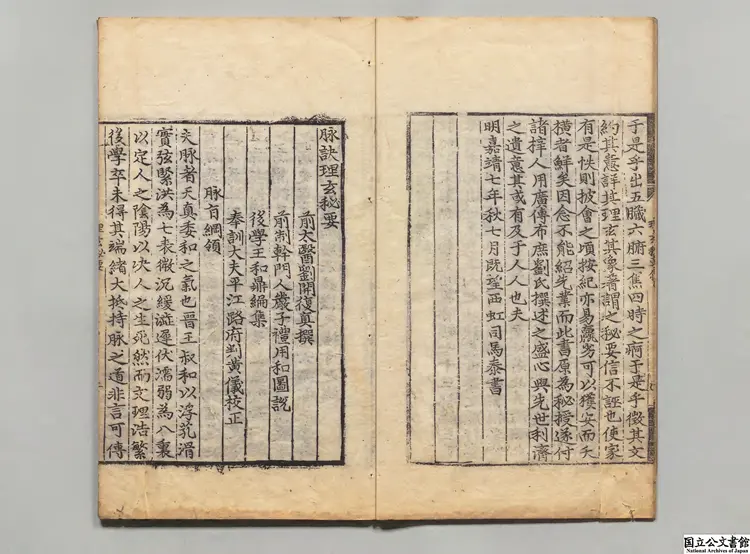 于是乎出五臟六腑三焦四時之病于是乎徵其文
約其意詳其理玄其衆者謂之秘要信不誣也使家
有是帙則披會之頃按紀亦易羸劣可以獲安而夭
橫者鮮矣因念不能紹先業而此書原為秘授遂付
諸梓人用廣傳布庶劉氏撰述之盛心與先世利濟
之遺意其或有及于人人也夫
明嘉靖七年秋七月既望西虹司馬泰書
脉訣理玄秘要
前太醫劉開復真撰
前制幹門人嚴子禮用和圖說
後學王和鼎編集
奉訓大夫平江路府判黃儀校正
脉旨綱領
夫脉者天真委和之氣也晉王叔和以浮芤滑
實弦緊洪為七表微沉緩澁遲伏濡弱為八裏
以定人之陰陽以决人之生死然而文理浩繁
後學卒未得其端緒大抵持脉之道非言可傳
理玄秘要
国立公文書館
National Archives of Japan